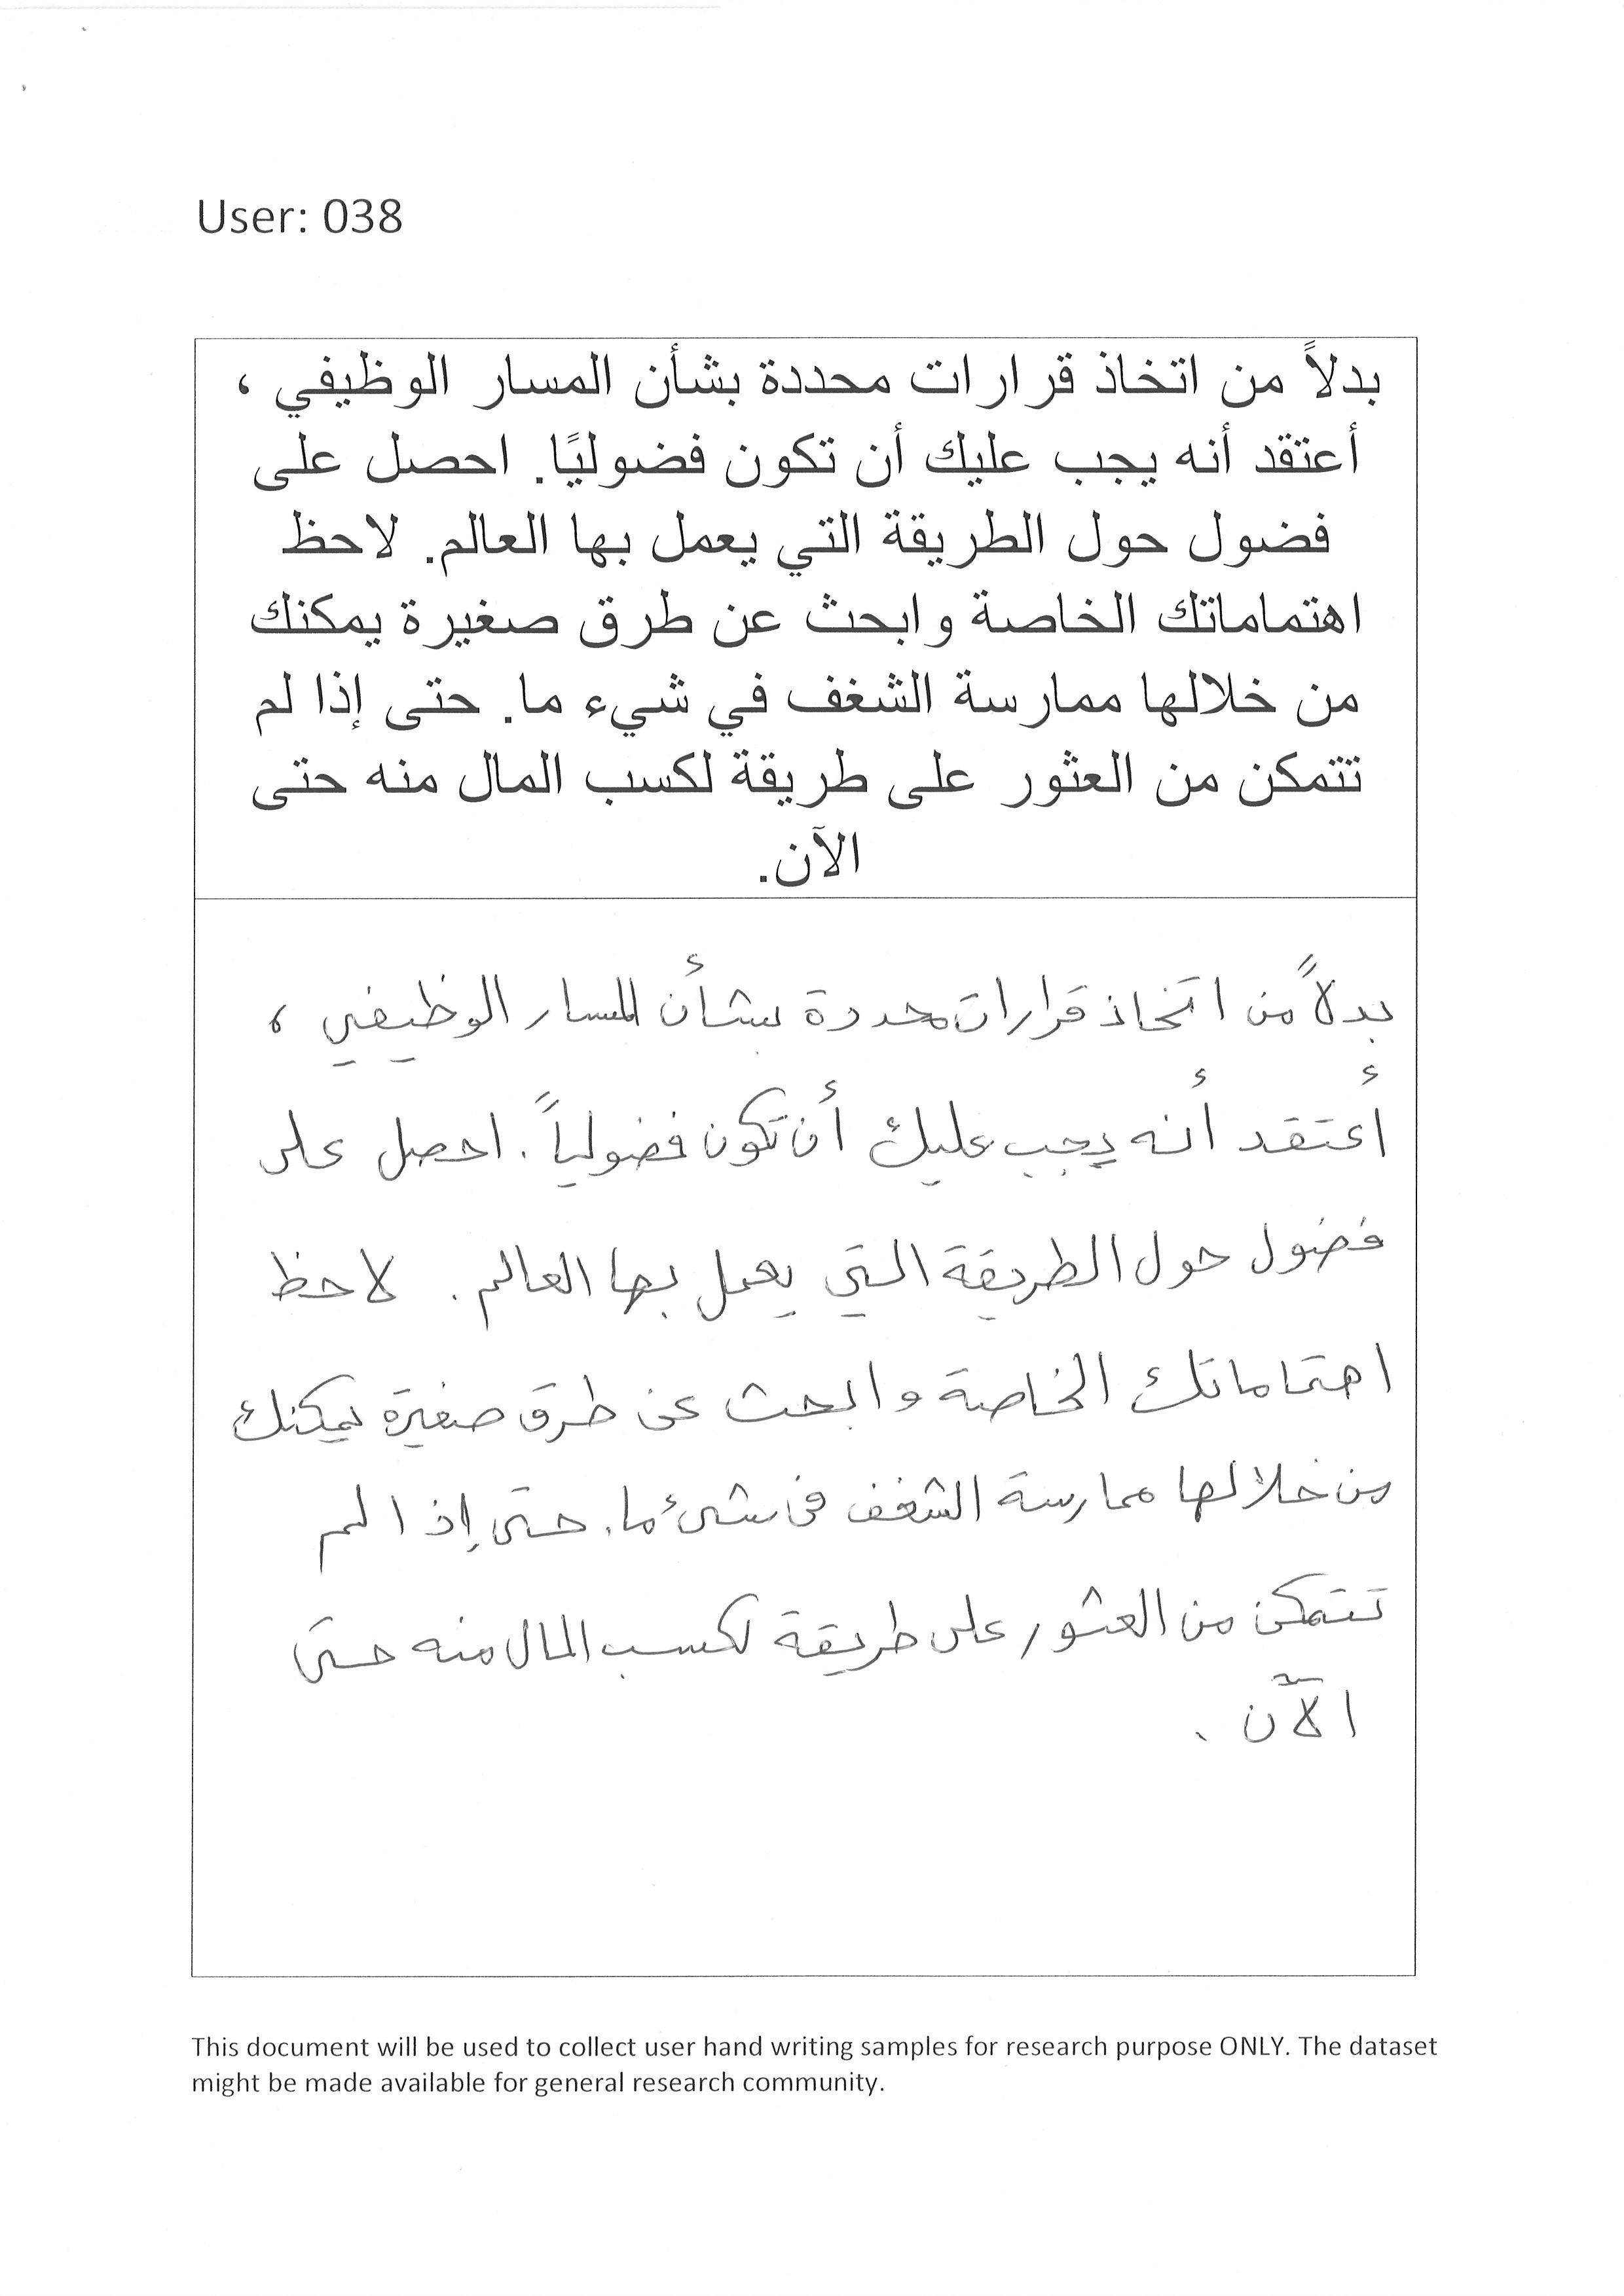 User: 038
بدلاً من اتخاذ قرارات محددة بشأن المسار الوظيفي ،
أعتقد أنه يجب عليك أن تكون فضوليًا. احصل على
فضول حول الطريقة التي يعمل بها العالم. لاحظ
اهتماماتك الخاصة وابحث عن طرق صغيرة يمكنك
من خلالها ممارسة الشغف في شيء ما. حتى إذا لم
تتمكن من العثور على طريقة لكسب المال منه حتى
الآن.
بدلاً من اتخاذ قرارات محددة بشأن المسار الوظيفي ،
أعتقد أنه يجب عليك أن تكون فضولياً . احصل على
فضول حول الطريقة التي يعمل بها العالم . لاحظ
اهتماماتك الخاصة وابحث عن طرق صغيرة يمكنك
من خلالها ممارسة الشغف فى شىء ما . حتى إذا لم
تتمكن من العثور على طريقة لكسب المال منه حتى
الآن .
This document will be used to collect user hand writing samples for research purpose ONLY. The dataset
might be made available for general research community.